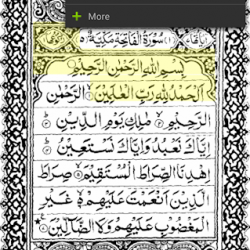 + More
سُوْرَةُ الْفَاتِحَةِ مَكِّيَّةٌ
بِسْمِ اللهِ الرَّحْمٰنِ الرَّحِيْمِ
اَلْحَمْدُ لِلّٰهِ رَبِّ الْعٰلَمِيْنَ ۙ الرَّحْمٰنِ
الرَّحِيْمِ ۙ مٰلِكِ يَوْمِ الدِّيْنِ
اِيَّاكَ نَعْبُدُ وَاِيَّاكَ نَسْتَعِيْنُ
اِهْدِنَا الصِّرَاطَ الْمُسْتَقِيْمَ ۙ صِرَاطَ
الَّذِيْنَ اَنْعَمْتَ عَلَيْهِمْ ۙ غَيْرِ
الْمَغْضُوْبِ عَلَيْهِمْ وَلَا الضَّآلِّيْنَ